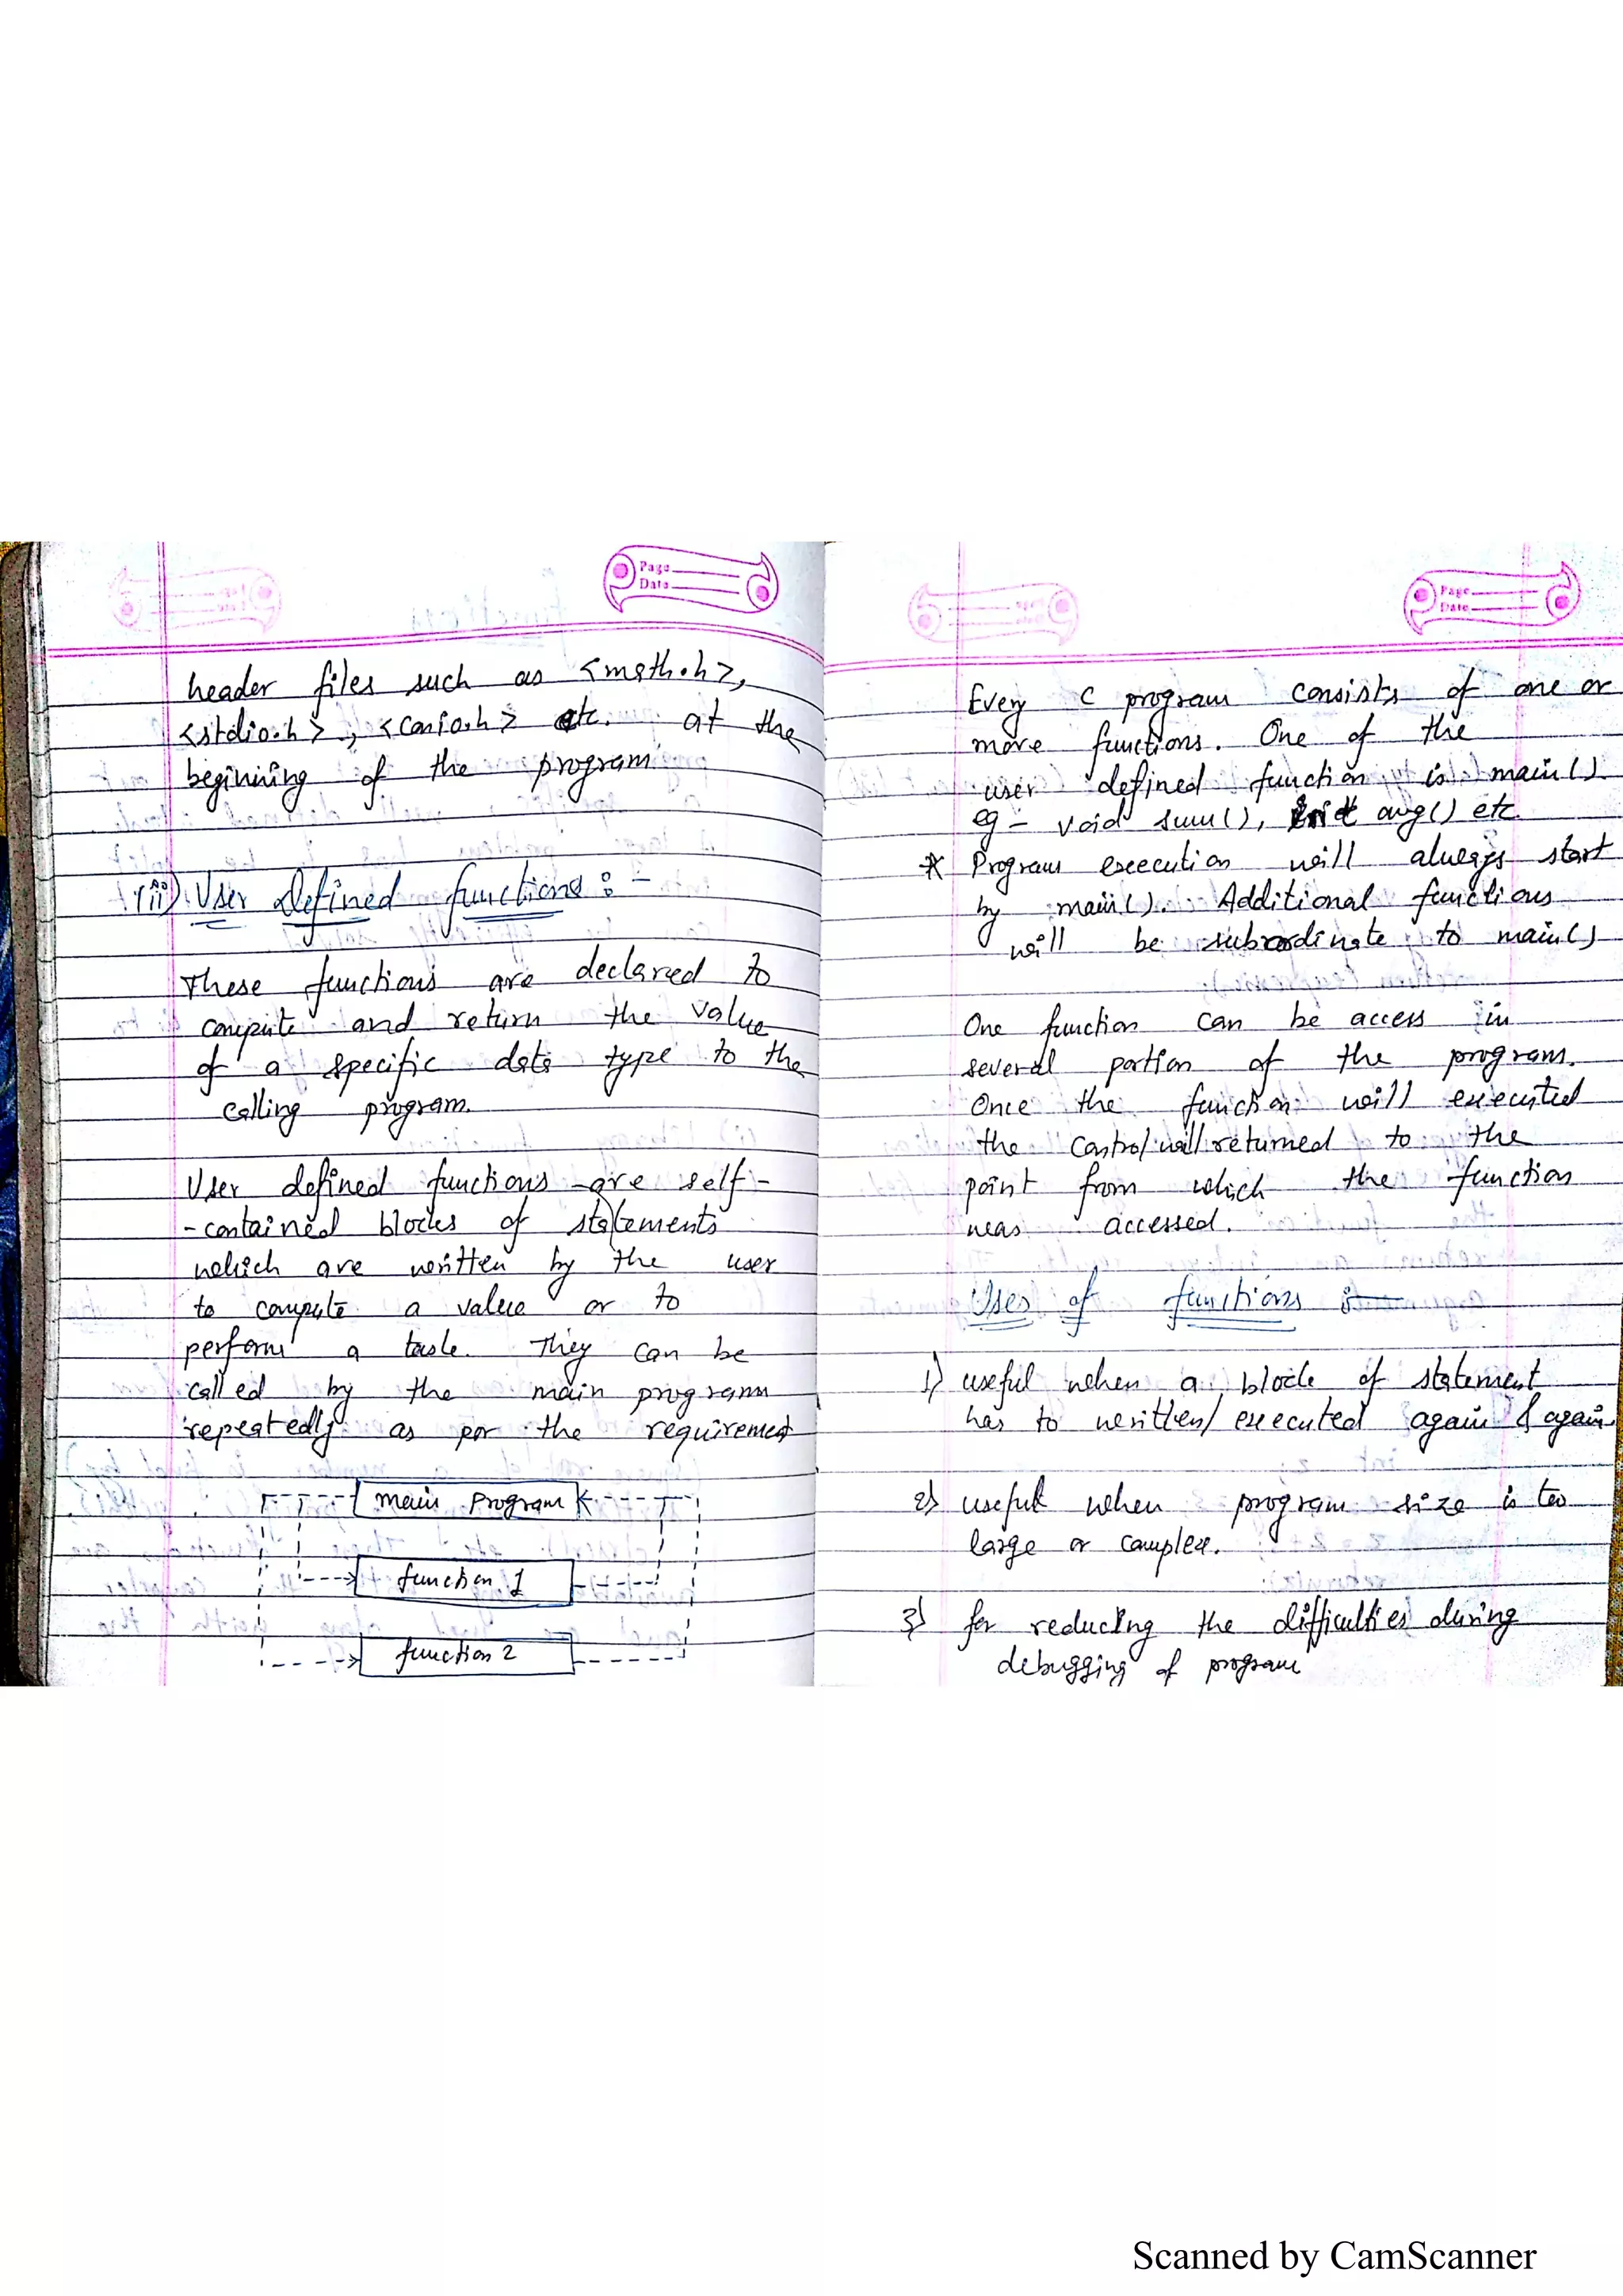 Page
Date
header files such as <math.h>,
<stdio.h>, <conio.h> etc. at the
beginining of the program.
(ii) User defined functions :-
These functions are declared to
compute and return the value
of a specific data type to the
calling program.
User defined functions are self-
-contained blocks of statements
which are written by the user
to compute a value or to
perform a task. They can be
called by the main program
repeatedly as per the requirement
main program
function 1
function 2
Page
Date
Every C program consists of one or
more functions. One of the
user defined function is main().
eg - void sum(), int avg() etc.
* Program execution will always start
by main(). Additional functions
will be subordinate to main()
One function can be access in
several portion of the program.
Once the function will executed
the control will returned to the
point from which the function
was accessed.
Uses of functions :-
1) useful when a block of statement
has to written/ executed again & again
2) useful when program size is too
large or complex.
3) for reducing the difficulties during
debugging of program
Scanned by CamScanner